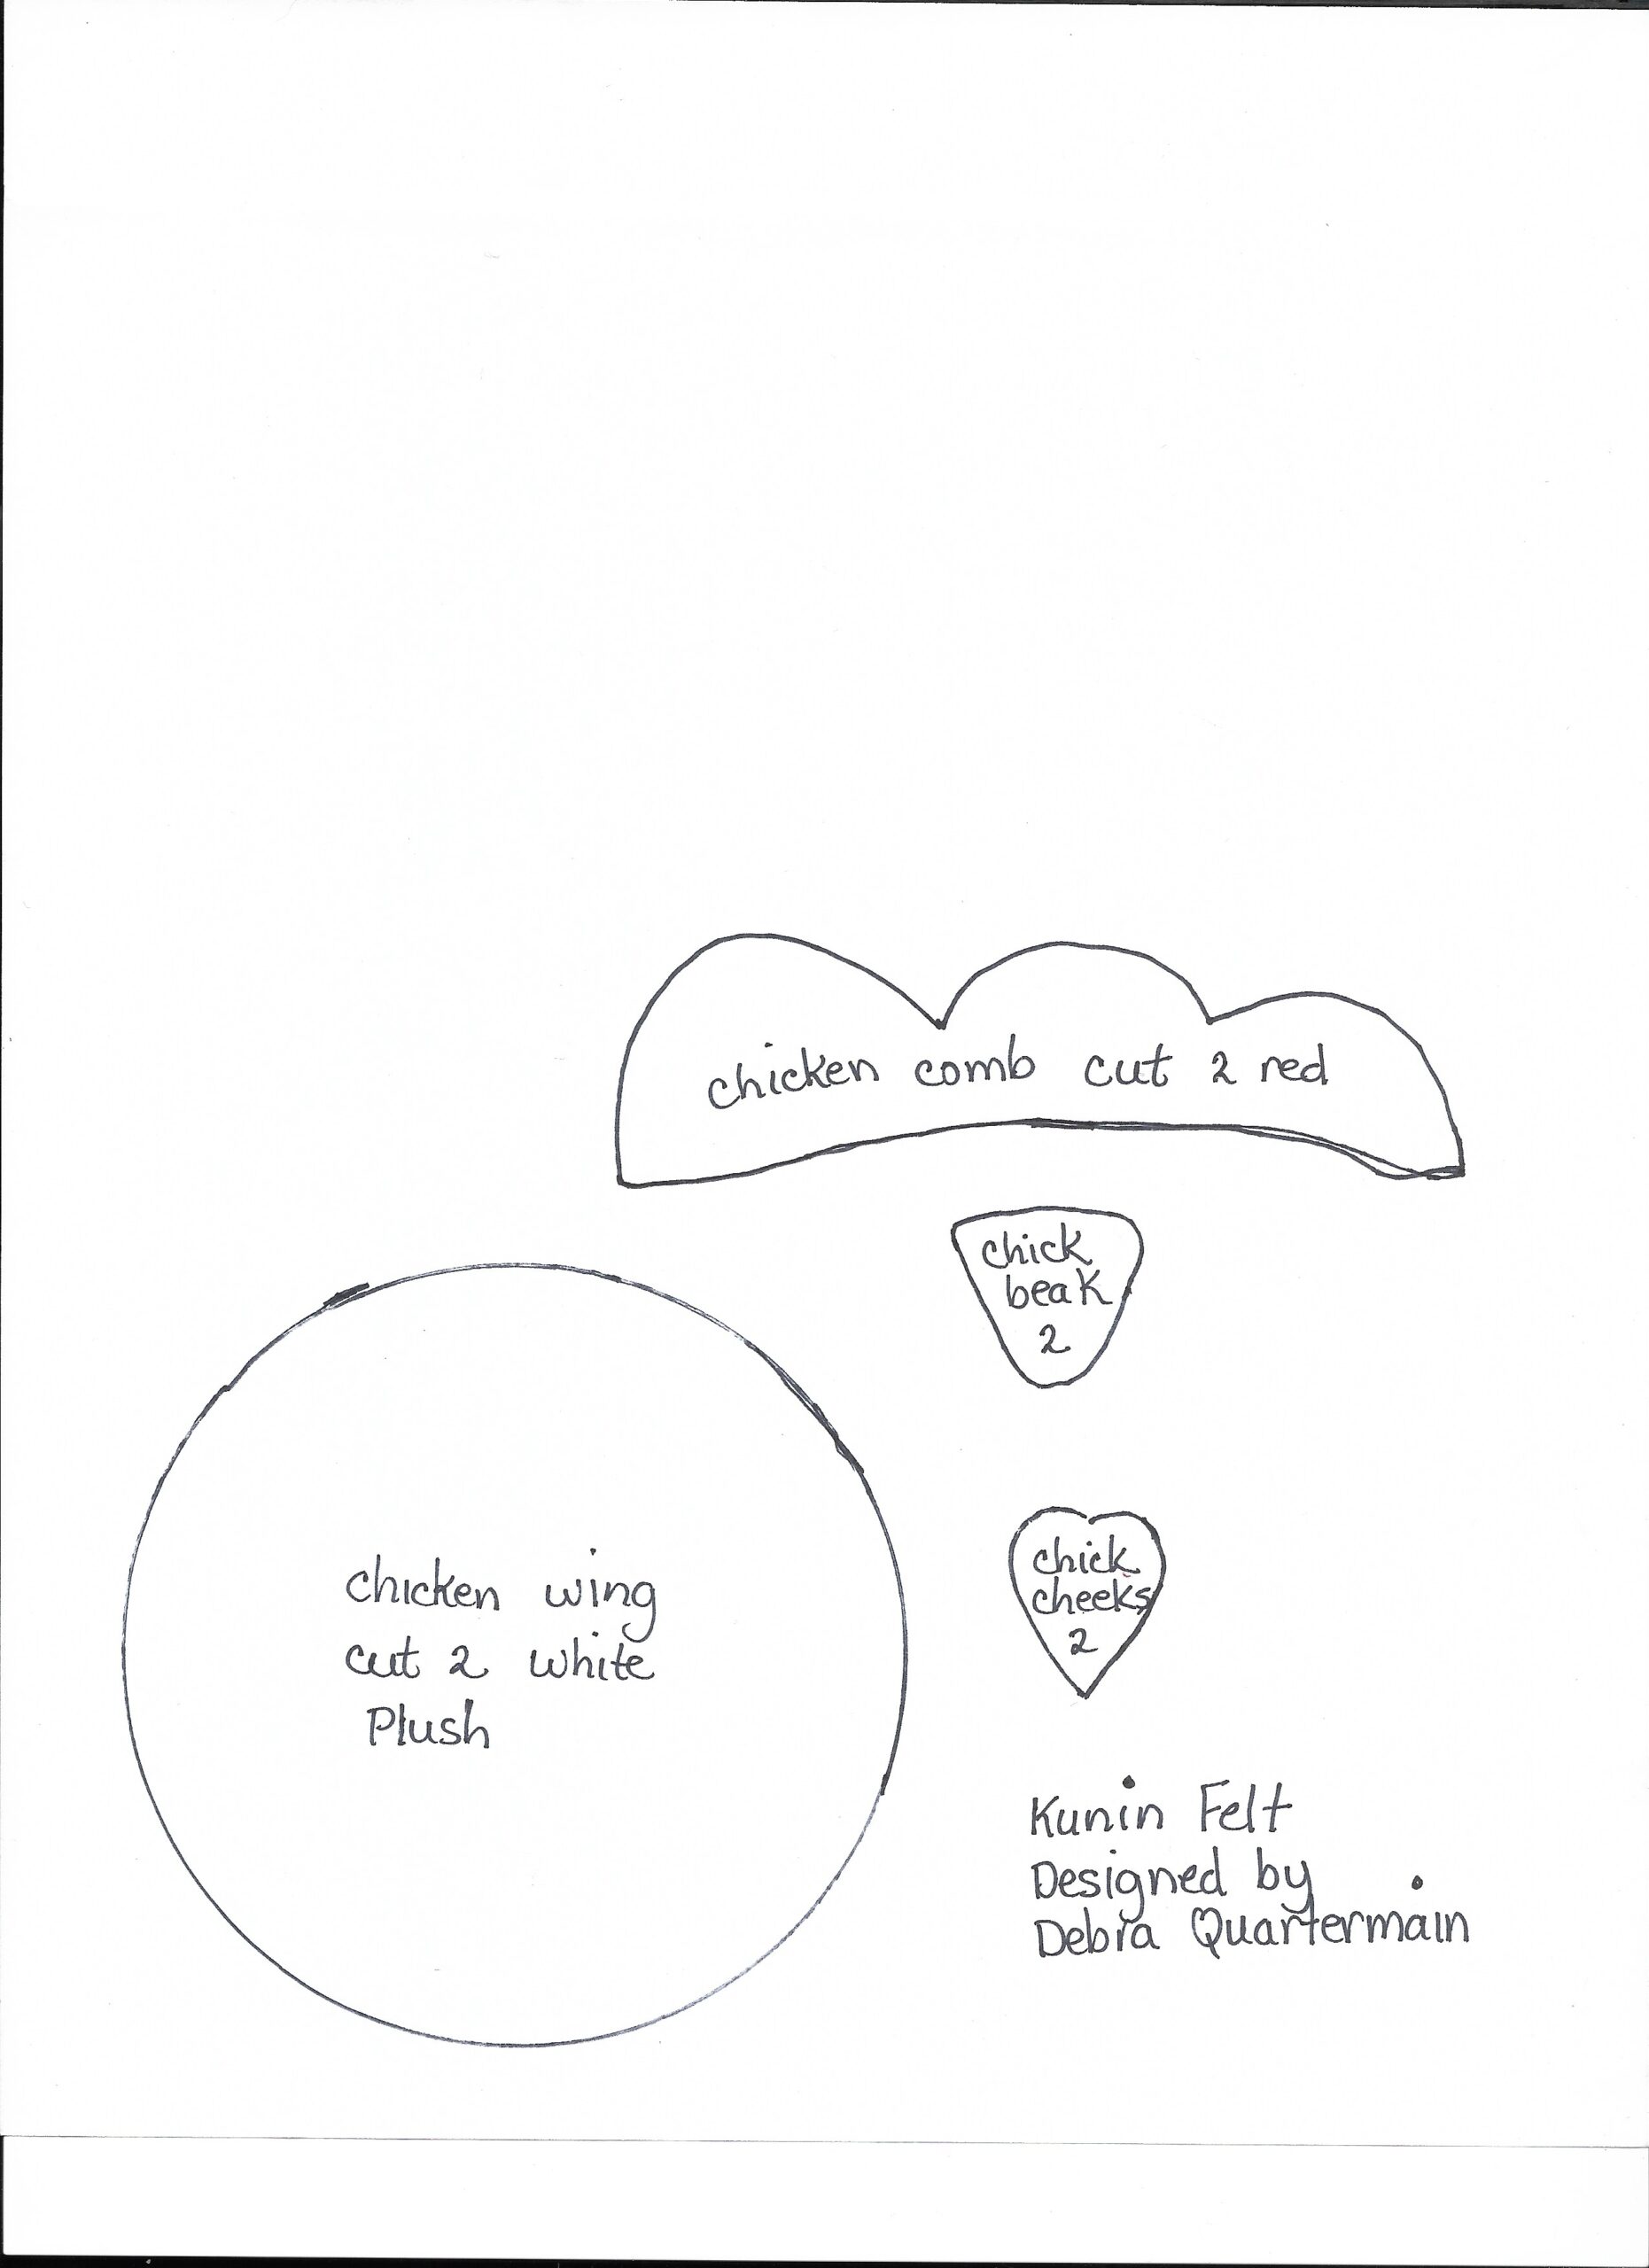 chicken comb cut 2 red
chick
beak
2
chicken wing
cut 2 white
Plush
chick
cheeks
2
Kunin Felt
Designed by
Debra Quartermain